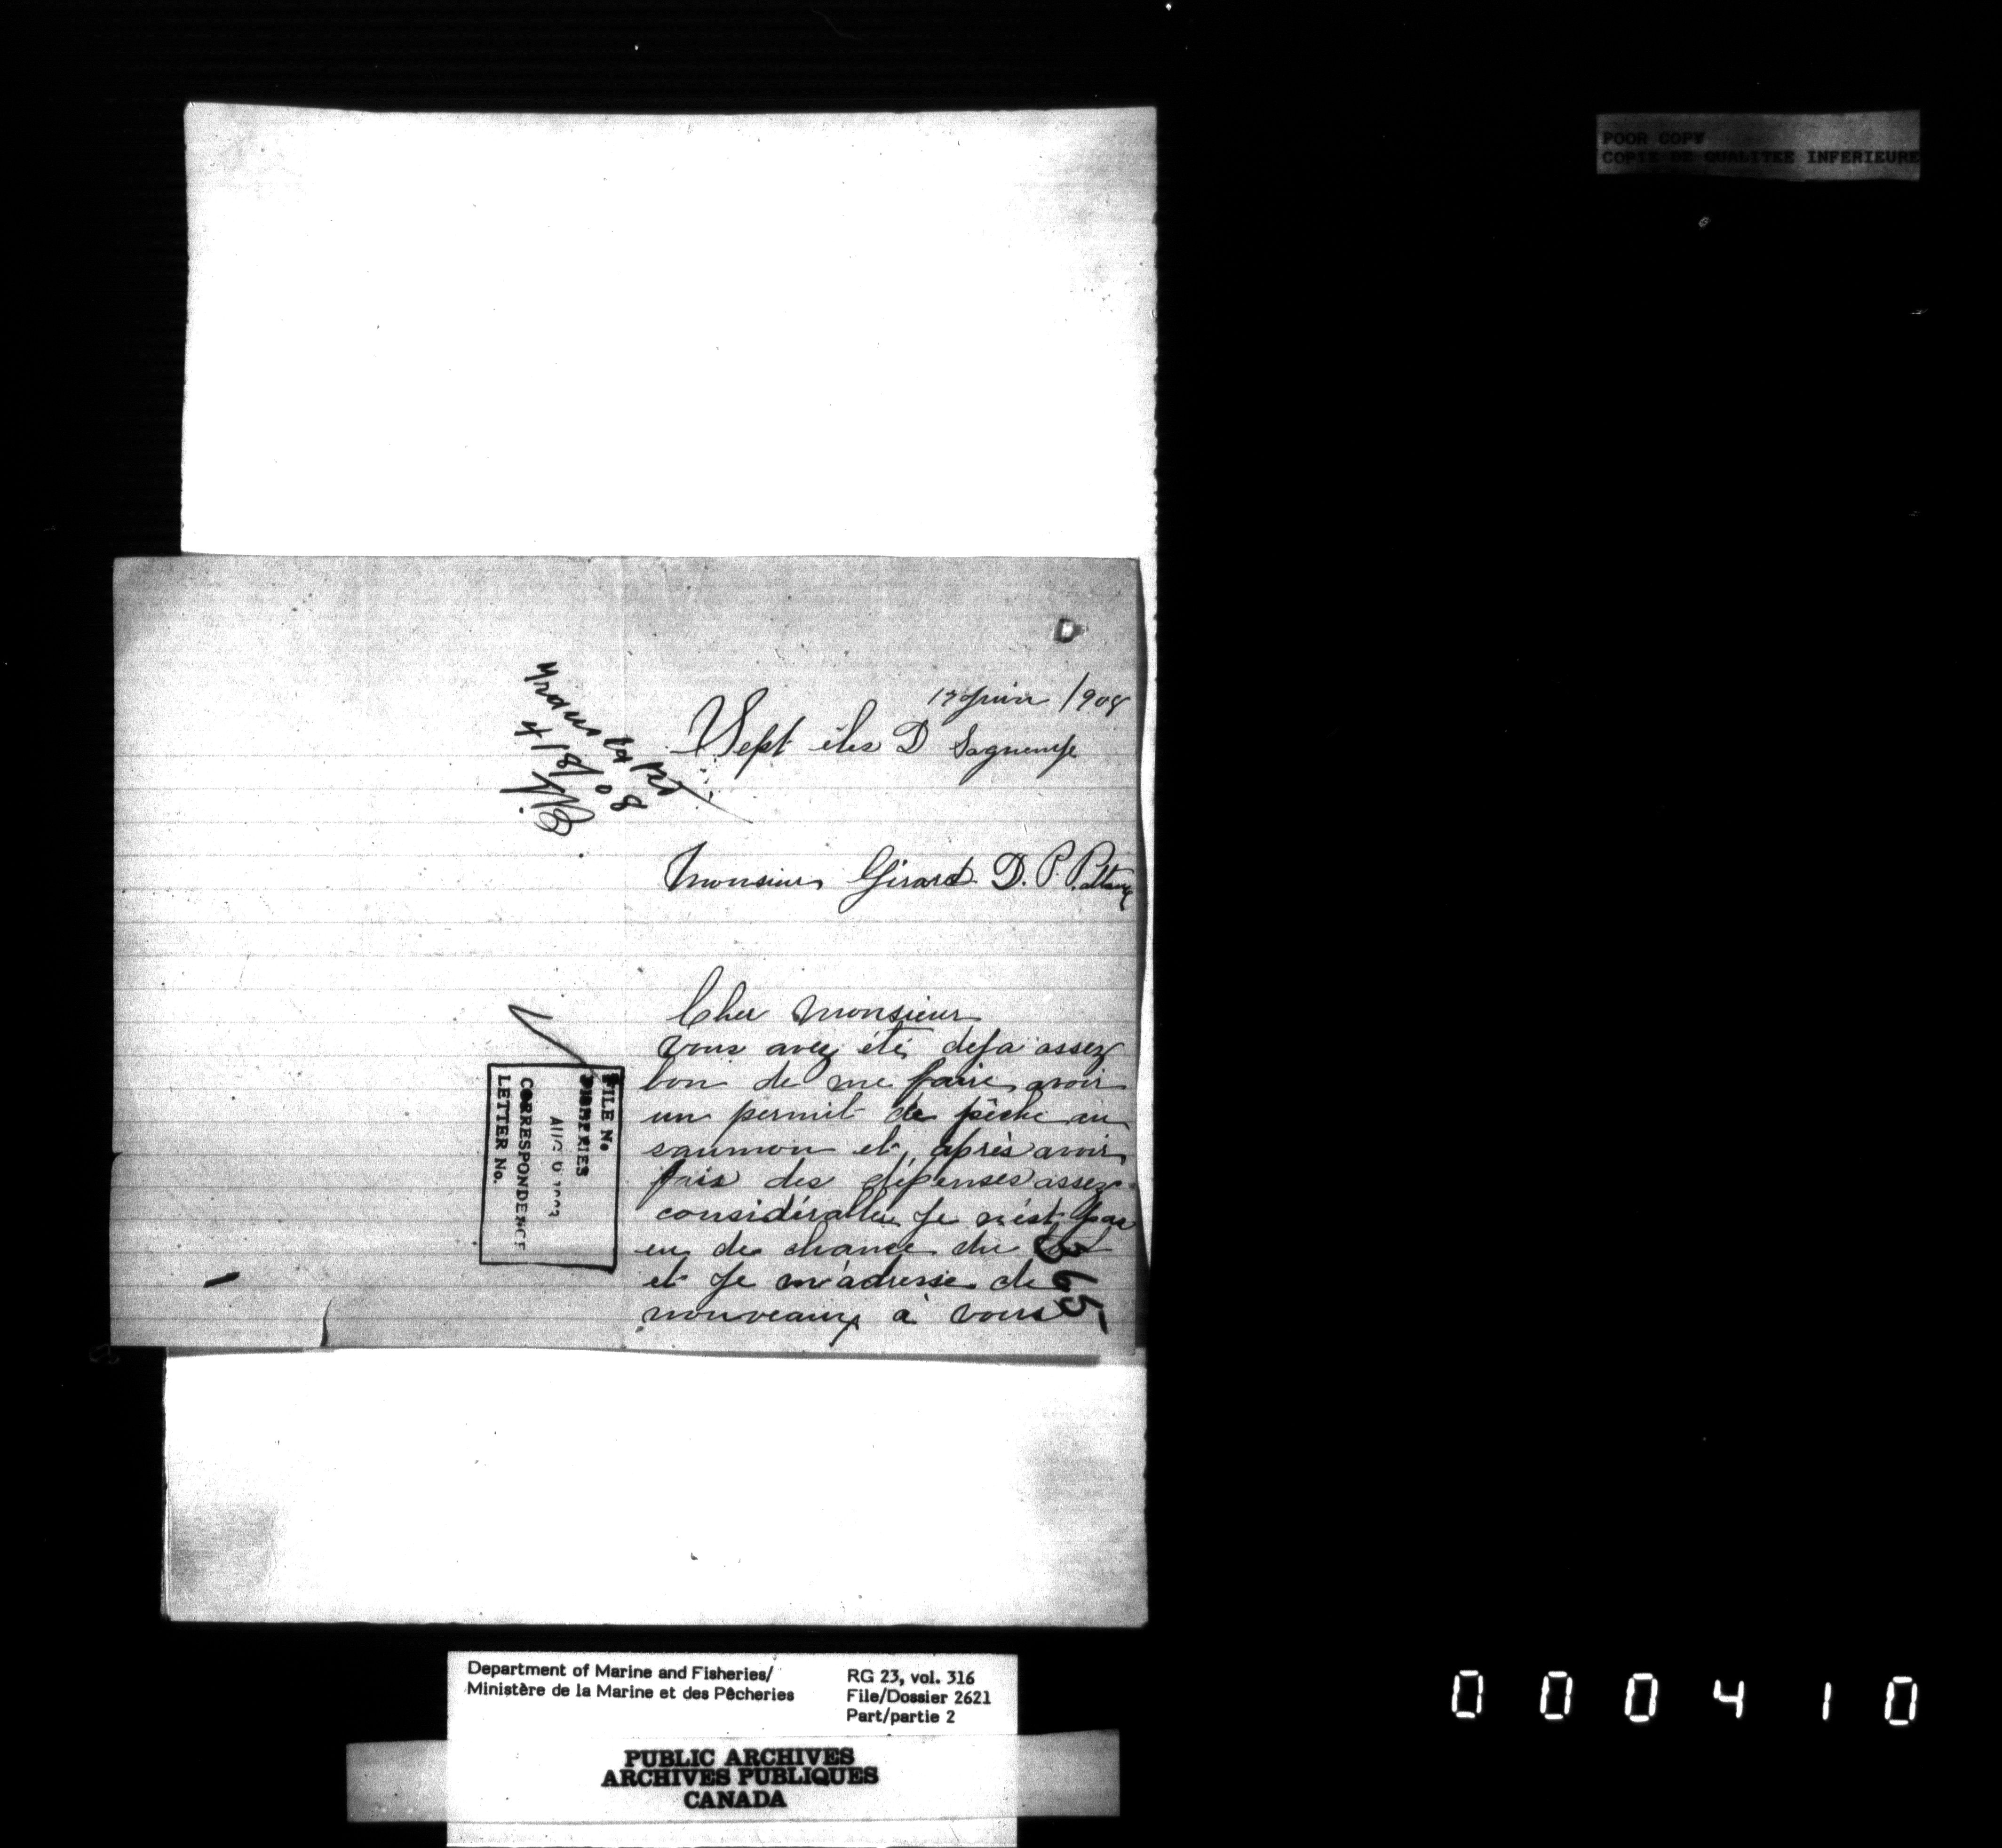 POOR COPY
COPIE DE QUALITEE INFERIEURE
17 Juin 1908
Sept îles D Saguenay
Translated
4/8/08
Monsieur Girard D. P. Ottawa
Cher Monsieur
Vous avez été deja assez
bon de me faire avoir
un permit de pêche au
saumon et, après avoir
fais des dépenses assez
considérables Je n'est pas
eu de chance du
et Je m'adresse de
nouveaux à vous
365
FILE No.
FISHERIES
AUG 6
CORRESPONDENCE
LETTER No.
Department of Marine and Fisheries/
Ministère de la Marine et des Pêcheries
RG 23, vol. 316
File/Dossier 2621
Part/partie 2
PUBLIC ARCHIVES
ARCHIVES PUBLIQUES
CANADA
000410